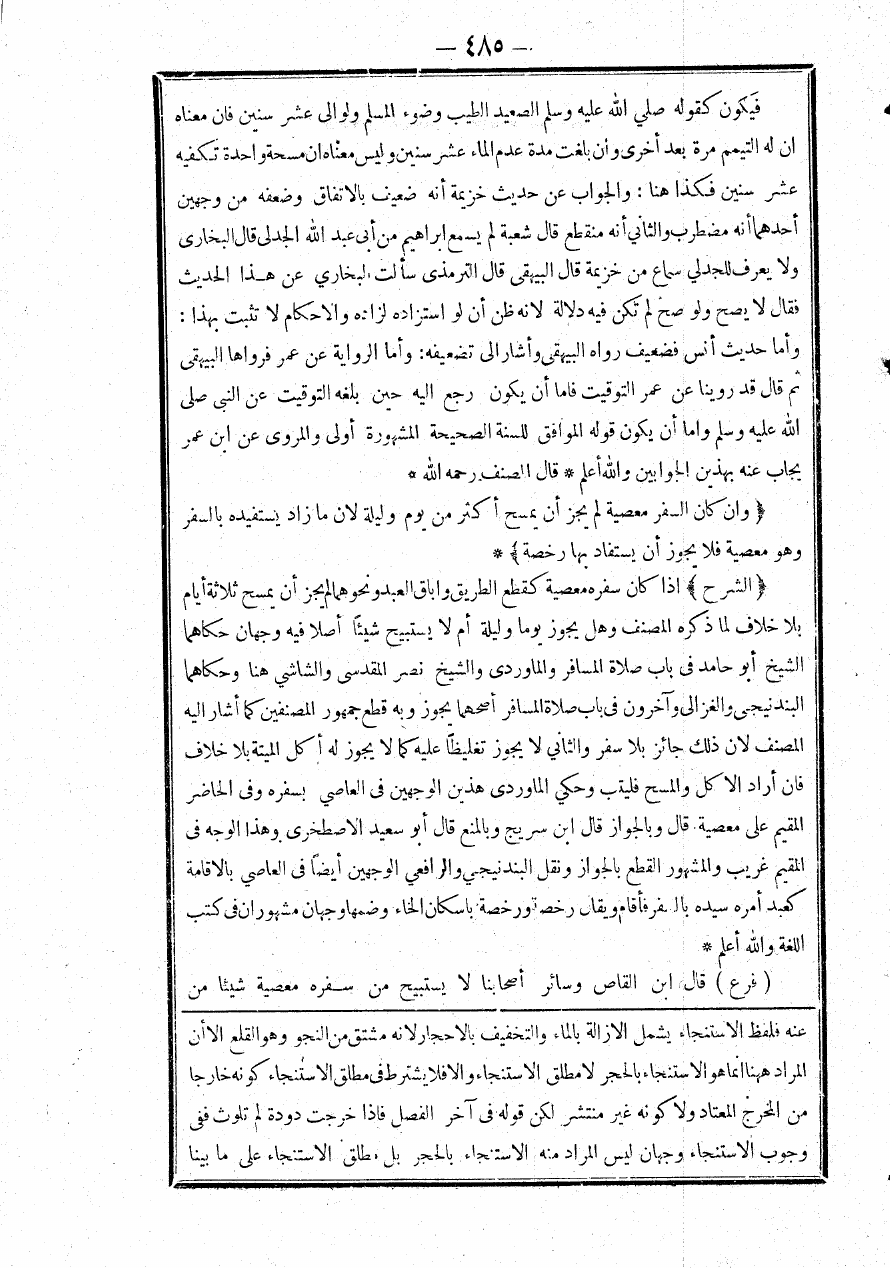 — ٤٨٥ —
فيكون كقوله صلي الله عليه وسلم الصعيد الطيب وضوء المسلم ولو الى عشر سنين فان معناه
ان له التيمم مرة بعد أخرى وأن بلغت مدة عدم الماء عشر سنين وليس معناه ان مسحة واحدة تكفيه
عشر سنين فكذا هنا : والجواب عن حديث خزيمة أنه ضعيف بالاتفاق وضعفه من وجهين
أحدهما أنه مضطرب والثاني أنه منقطع قال شعبة لم يسمع ابراهيم من أبى عبد الله الجدلى قال البخارى
ولا يعرف للجدلي سماع من خزيمة قال البيهقى قال الترمذى سألت البخاري عن هذا الحديث
فقال لا يصح ولو صح لم تكن فيه دلالة لانه ظن أن لو استزاده لزاده والاحكام لا تثبت بهذا :
وأما حديث أنس فضعيف رواه البيهقى وأشار الى تضعيفه: وأما الرواية عن عمر فرواها البيهقى
ثم قال قد روينا عن عمر التوقيت فاما أن يكون رجع اليه حين بلغه التوقيت عن النبى صلى
الله عليه وسلم واما أن يكون قوله الموافق للسنة الصحيحة المشهورة أولى والمروى عن ابن عمر
يجاب عنه بهذين الجوابين والله أعلم * قال المصنف رحمه الله *
﴿ وان كان السفر معصية لم يجز أن يمسح أكثر من يوم وليلة لان ما زاد يستفيده بالسفر
وهو معصية فلا يجوز أن يستفاد بها رخصة ﴾ *
﴿ الشرح ﴾ اذا كان سفره معصية كقطع الطريق واباق العبد ونحوهما لم يجز أن يمسح ثلاثة أيام
بلا خلاف لما ذكره المصنف وهل يجوز يوما وليلة أم لا يستبيح شيئًا أصلا فيه وجهان حكاهما
الشيخ أبو حامد فى باب صلاة المسافر والماوردى والشيخ نصر المقدسى والشاشي هنا وحكاهما
البندنيجى والغزالى وآخرون فى باب صلاة المسافر أصحهما يجوز وبه قطع جمهور المصنفين كما أشار اليه
المصنف لان ذلك جائز بلا سفر والثاني لا يجوز تغليظًا عليه كما لا يجوز له أكل الميتة بلا خلاف
فان أراد الاكل والمسح فليتب وحكي الماوردى هذين الوجهين فى العاصي بسفره وفى الحاضر
المقيم على معصية قال وبالجواز قال ابن سريج وبالمنع قال أبو سعيد الاصطخرى وهذا الوجه فى
المقيم غريب والمشهور القطع بالجواز ونقل البندنيجي والرافعي الوجهين أيضاً فى العاصي بالاقامة
كعبد أمره سيده بالسفر فأقام ويقال رخصة ورخصة باسكان الخاء وضمها وجهان مشهوران فى كتب
اللغة والله أعلم *
( فرع ) قال ابن القاص وسائر أصحابنا لا يستبيح من سفره معصية شيئا من
عنه فلفظ الاستنجاء يشمل الازالة بالماء والتخفيف بالاحجار لانه مشتق من النجو وهو القلع الا أن
المراد ههنا انما هو الاستنجاء بالحجر لا مطلق الاستنجاء والا فلا يشترط فى مطلق الاستنجاء كونه خارجا
من المخرج المعتاد ولا كونه غير منتشر لكن قوله فى آخر الفصل فاذا خرجت دودة لم تلوث ففى
وجوب الاستنجاء وجهان ليس المراد منه الاستنجاء بالحجر بل مطلق الاستنجاء على ما بينا